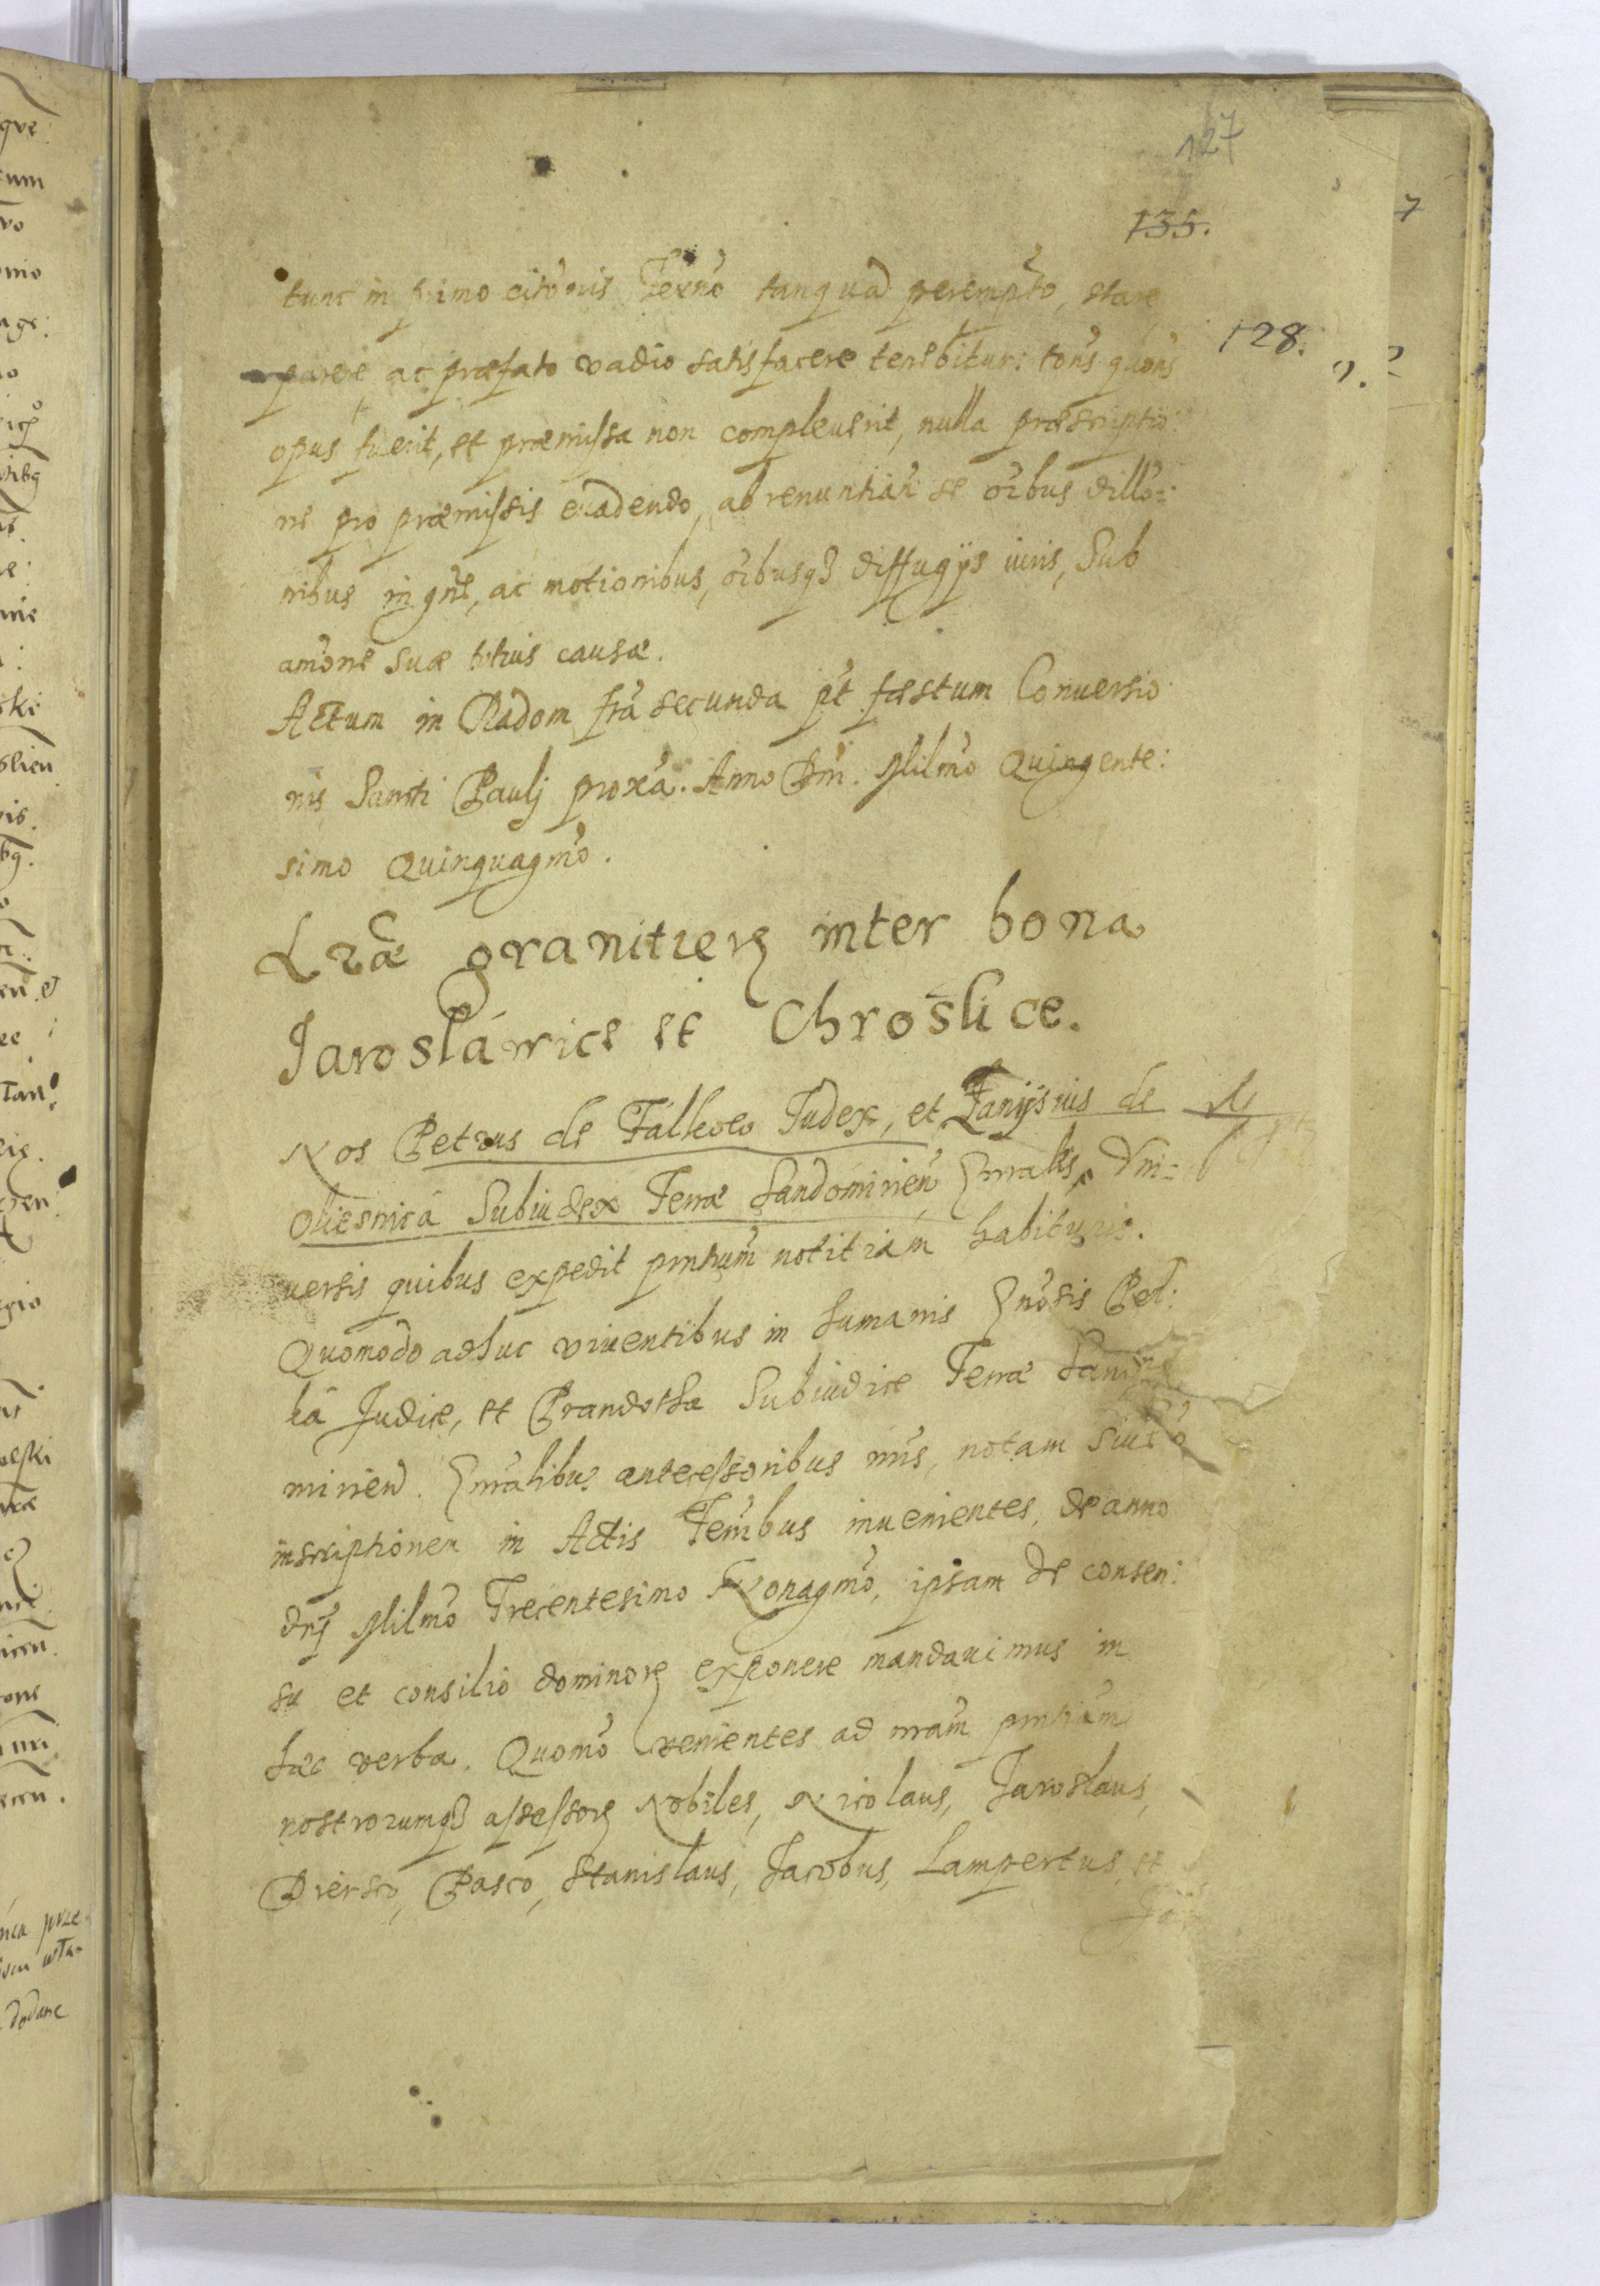 127
135.
tunc in primo citōnis Termō tanquā perempto, stare
128.
parere ac præfato vadio satisfacere tenebitur: tōns quōns
opus fuerit, et præmissa non compleuerit, nulla præscriptio:
ne pro præmissis evadendo, ab renuntiāñ se oībus dillō:
nibus in gnē, ac motionibus, oībusq3 diffugijs iuris, Sub
amōne suæ totius causæ.
Actum in Radom frā secunda pt festum Conuersio
nis Sancti Paulj proxā. Anno Dni. Mlīmō Quingente:
simo Quinquagmō.
Lrāe granitierz inter bona
Jarosláwice et Chroślice.
Nos Petrus de Fálkow Judex, et Janýsius de
Oliesnicá Subiudex Terræ Sandomirień Gnralis, Vni=
uersis quibus expedit pntium notitiam habituris.
Quomodo adhuc viuentibus in humanis Gnōsis Peł:
ká Judice, et Prandotha Subiudice Terræ
mirien. Gnrālibus antecessoribus nris, notam siue
inscriptionem in Actis Terribus inuenientes, de anno
dnj Mlīmō Trecentesimo Nonagmō, ipsam de consen:
su et consilio dominorz exponere mandauimus in
hæc verba. Quomō venientes ad nram pntiam
nostrorumq3 assessorz Nobiles, Nicolaus, Jaroslaus,
Diersco, Pasco, Stanislaus, Jacobus, Lampertus, et